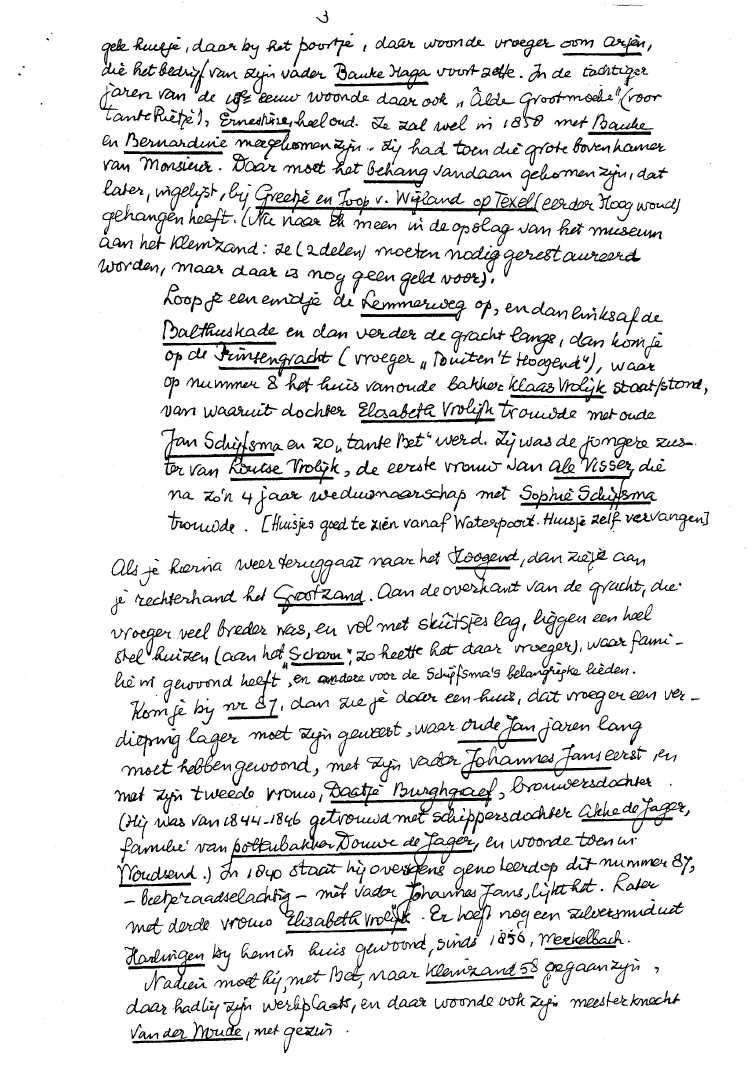 3
gele huisje, daar by het poortje, daar woonde vroeger oom Arjen,
die het bedrijf van zijn vader Bauke Haga voort zette. In de tachtiger
jaren van de 19e eeuw woonde daar ook "Alde Grootmoeke" (voor
tante Pietje), Ernestine, heel oud. Ze zal wel in 1858 met Bauke
en Bernardine meegekomen zijn. Zij had toen die grote bovenkamer
van Monsieur. Daar moet het behang vandaan gekomen zijn, dat
later, ingelijst, bij Greetje en Joop v. Wijland op Texel (eerder Hoogwoud)
gehangen heeft. (Nu naar ik meen in de opslag van het museum
aan het Kleinzand: ze (2 delen) moeten nodig gerestaureerd
worden, maar daar is nog geen geld voor).
Loop je een eindje de Lemmerweg op, en dan linksaf de
Balthuskade en dan verder de gracht langs, dan kom je
op de Prinsengracht (vroeger "Buiten 't Hoogend"), waar
op nummer 8 het huis van oude bakker Klaas Vrolijk staat/stond,
van waaruit dochter Elisabeth Vrolijk trouwde met oude
Jan Schijfsma en zo "tante Bet" werd. Zij was de jongere zus-
ter van Houtse Vrolijk, de eerste vrouw van Ale Visser, die
na zo'n 4 jaar weduwnaarschap met Sophie Schijfsma
trouwde. [Huisjes goed te zien vanaf Waterpoort. Huisje zelf vervangen]
Als je hierna weer teruggaat naar het Hoogend, dan zie je aan
je rechterhand het Grootzand. Aan de overkant van de gracht, die
vroeger veel breder was, en vol met skûtsjes lag, liggen een heel
stel huizen (aan het "Scharn", zo heette het daar vroeger), waar fami-
lie in gewoond heeft, en andere voor de Schijfsma's belangrijke lieden.
Kom je bij nr 87, dan zie je daar een huis, dat vroeger een ver-
dieping lager moet zijn geweest, waar oude Jan jaren lang
moet hebben gewoond, met zijn vader Johannes Jans eerst, en
met zijn tweede vrouw, Daatje Burghgraef, brouwersdochter.
(Hij was van 1844-1846 getrouwd met schippersdochter Akke de Jager,
familie van pottenbakker Douwe de Jager, en woonde toen in
Woudsend.) In 1840 staat hij overigens genoteerd op dit nummer 87,
- beetje raadselachtig - met vader Johannes Jans, lijkt het. Later
met derde vrouw Elisabeth Vrolijk. Er heeft nog een zilversmid uit
Harlingen by hem in huis gewoond, sinds 1856, Merkelbach.
Nadien moet hij, met Bet, naar Kleinzand 58 gegaan zijn,
daar had hij zijn werkplaats, en daar woonde ook zijn meesterknecht
van der Woude, met gezin.